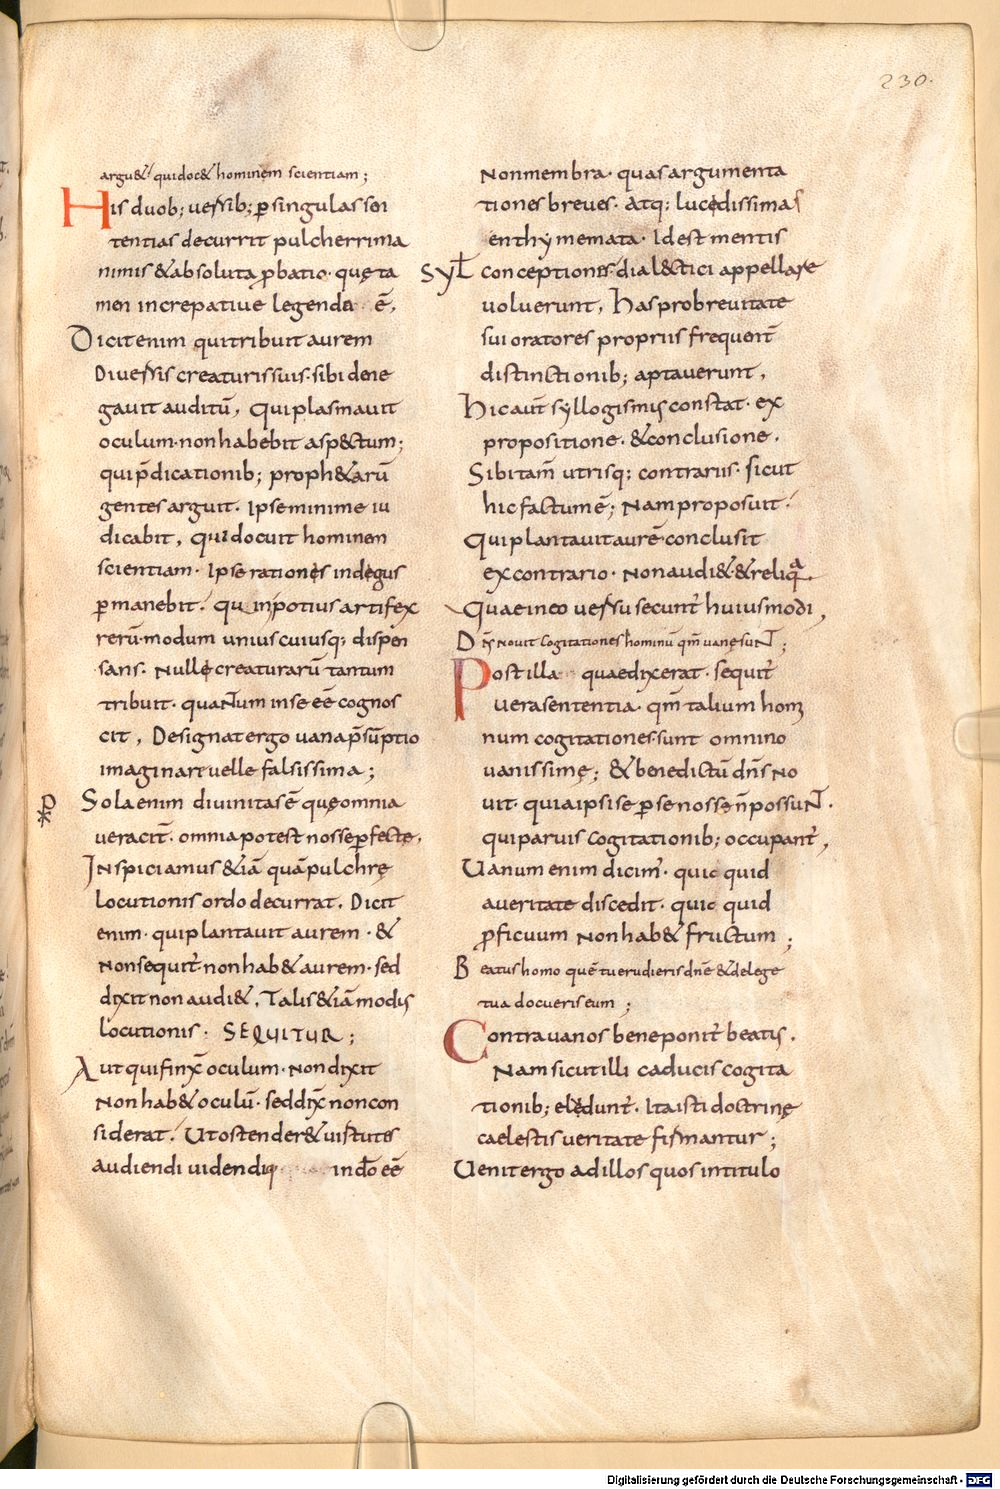 230.
argu& quidoc& hominem scientiam;
His duob; uersib; ꝑ singulas sen
tentias decurrit pulcherrima
nimis & absoluta ꝓbatio· quę ta
men increpatiue legenda ē,
Dicit enim qui tribuit aurem
Diuersis creaturis suis· sibi dene
gauit auditū, Qui plasmauit
oculum· non habebit asp&ctum;
qui p̄dicationib; proph&arū
gentes arguit· Ipse minime iu
dicabit, Qui docuit hominem
scientiam· Ipse rationęs indegus
ꝑmanebit· potius artifex
rerū· modum unius cuiusq; dispen
sans· Nullę creaturarū tantum
tribuit· quantum in se eē cognos
cit, Designat ergo uana p̄sūptio
imaginari uelle falsissima;
Sola enim diuinitas ē quę omnia
ueracit̄· omnia potest nosse ꝑfecte,
Inspiciamus &iā quā pulchrę
locutionis ordo decurrat, Dicit
enim· qui plantauit aurem· &
Non sequit̄ non hab& aurem· sed
dixit non audi&, Talis &iā modis
locutionis· SEQUITUR;
Aut qui finx̄ oculum· Non dixit
Non hab& oculū· sed dix̄ non con
siderat· Ut ostender& uirtutes
audiendi uidendiq in dō eē
Non membra· quas argumenta
tiones breues· Atq; lucędissimas
enthymemata· Idest mentis
SYL̄ conceptiones· dial&ctici appellare
uoluerunt, Has pro breuitate
sui oratores propriis frequent̄
distinctionib; aptauerunt,
Hic aut̄ syllogismis constat· ex
propositione· & conclusione,
Sibi tam̄ utrisq; contrariis· sicut
hic factum ē; Nam proposuit·
Qui plantauit aurē· conclusit
ex contrario· Non audi& & reliqa
Quae in eo uersu secunt̄ huiusmodi,
Dn̄s nouit cogitationes hominū qm̄ uanę sunt;
Post illa quae dixerat· sequit̄
uera sententia· qm̄ talium homi
num cogitationes· sunt omnino
uanissimę; & benedictū dn̄s no
uit· quia ipsi se ꝑ se nosse n̄ possunt·
qui paruis cogitationib; occupant̄,
Uanum enim dicim̄· quic quid
a ueritate discedit· quic quid
ꝓficuum non hab& fructum;
Beatus homo quē tu erudieris dn̄e & de lege
tua docueris eum;
Contra uanos bene ponit̄ beatis·
Nam sicut illi caducis cogita
tionib; elędunt̄· Ita isti doctrinę
caelestis ueritate firmantur;
Uenit ergo ad illos quos in titulo
Digitalisierung gefördert durch die Deutsche Forschungsgemeinschaft - DFG